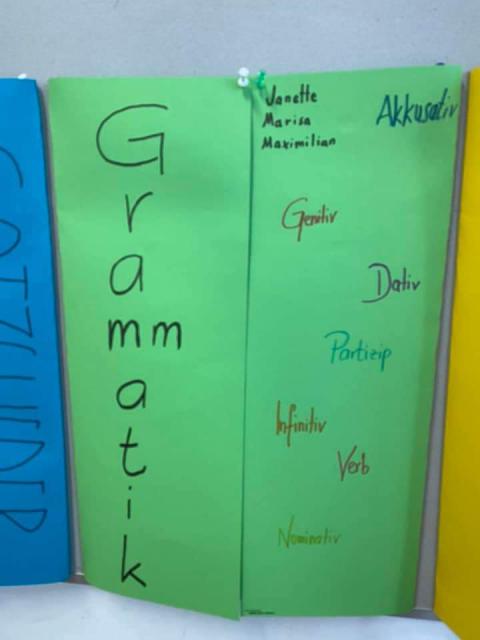 G
r
a
mm
a
t
i
k
Janette
Marisa
Maximilian
Akkusativ
Genitiv
Dativ
Partizip
Infinitiv
Verb
Nominativ